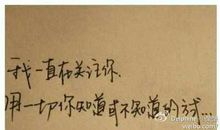 我一直在关注你.
用一切你知道或不知道的方式...
weibo.com/